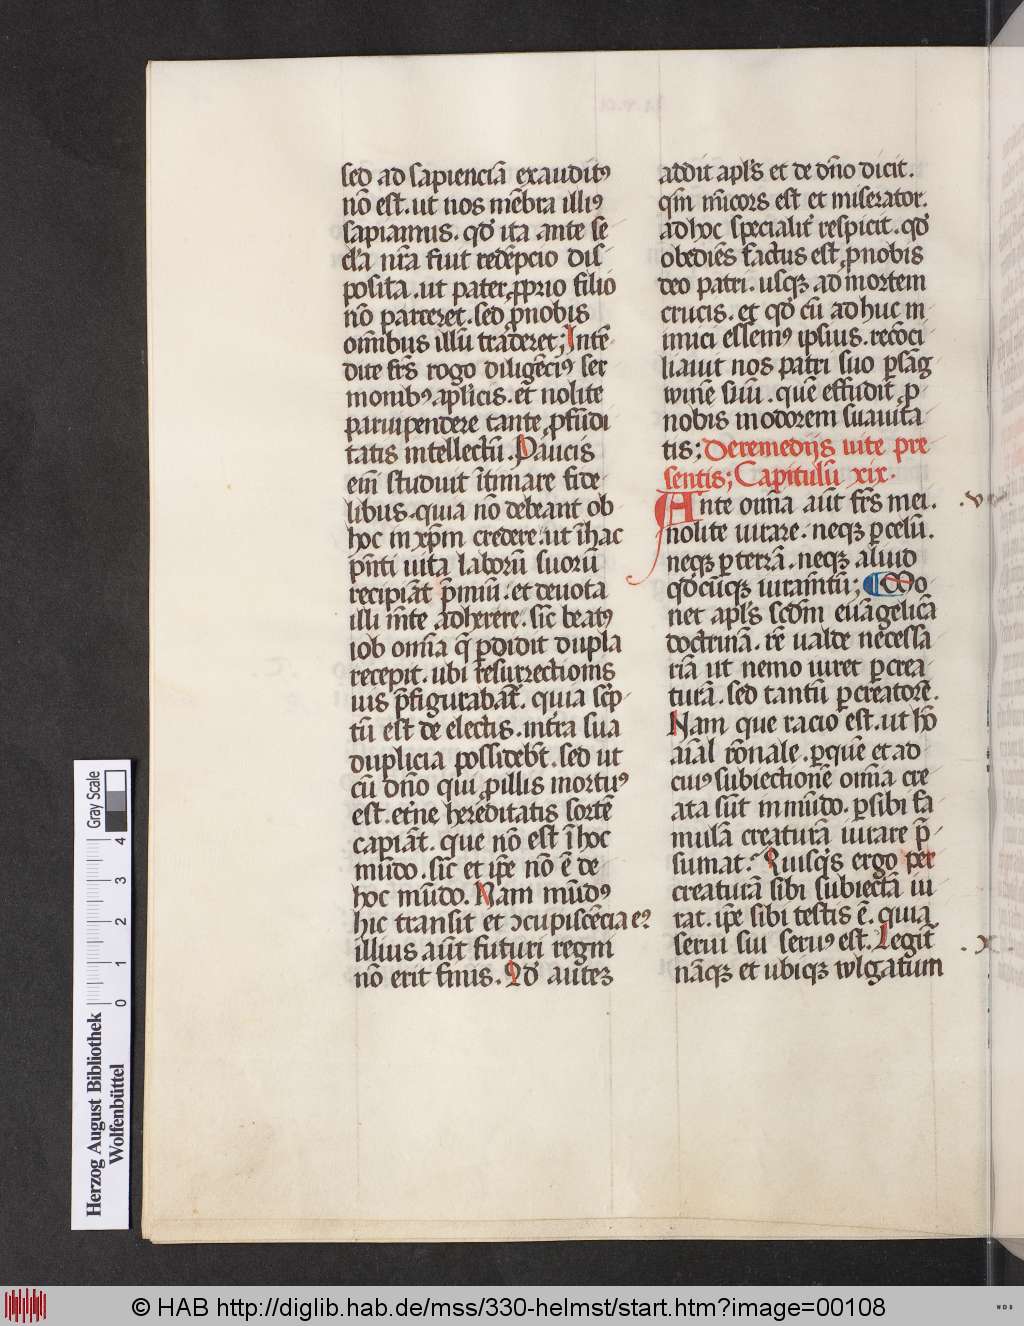 sed ad sapienciā exauditꝰ
nō est. ut nos mēbra illiꝰ
sapiamus. qd̕ ita ante se
cl̕a nr̄a fiuit redēpcio dis
posita. ut pater ꝓprio filio
nō parceret. sed ꝓ nobis
om̄ibus illū traderet; Intē
dite fr̄s rogo diligēciꝰ ser
monibꝰ apl̕icis. et nolite
paruipendere tante ꝓfūdi
tatis intellectū. Paucis
eni᷑ studuit ītimare fide
libus. quia nō debeant ob
hoc in xp̄m credere. ut ī hac
pn̄ti uita laborū suorū
recipiāt p̄miū. et deuota
illi m̄te adherere. sic̄ beatꝰ
iob om̄ia q̄ ꝑdidit dupla
recepit. ubi resurrectionis
ius p̄figurabat᷑. quia sc̄p
tū est de electis. int̄ra sua
duplicia possidebt̄. sed ut
cū dn̄o qui ꝓ illis mortuꝰ
est. et̄ne hereditatis sortē
capiāt. que nō est ī hoc
mūdo. sic̄ et ip̄e nō ē de
hoc mūdo. Nam mūdꝰ
hic transit et ↄcupiscēcia eꝰ
illius aūt futuri regni
nō erit finis. Qd̕ auteꝫ
addit apl̕s et de dn̄o dicit.
qm̄ mīcors est et miserator.
ad hoc specialit̄ respicit. qd̕
obediēs factus est ꝓ nobis
deo patri. usqꝫ ad mortem
crucis. et qd̕ cū ad huc in
imici essemꝰ ipsius. recōci
liauit nos patri suo ꝑ sāg
winē suū. quē effudit ꝓ
nobis in odorem suauita
tis; De remedijs uite pre
sentis; Capitulū xix.
Ante om̄ia aūt fr̄s mei.
nolite iurare. neqꝫ ꝑ celū.
neqꝫ ꝑ terrā. neqꝫ aliud
qd̕cūqꝫ iuram̄tū; Mo
net apl̕s scd̄m euāgelicā
doctrinā. rē ualde necessa
riā ut nemo iuret ꝑ crea
turā. sed tantū ꝑ creatorē.
Nam que racio est. ut hō
aīal rōnale. ꝑ quē et ad
cuiꝰ subiectionē om̄ia cre
ata sūt in mūdo. ꝑ sibi fa
mulā creaturā iurare p̄
sumat. Quisqꝫ ergo per
creaturā sibi subiectā iu
rat. ip̄e sibi testis ē. quia
serui sui seruꝰ est. Legit᷑
nāqꝫ et ubiqꝫ wlgatum
.x.
Herzog August Bibliothek
Wolfenbüttel
0 1 2 3 4
Gray Scale
© HAB http://diglib.hab.de/mss/330-helmst/start.htm?image=00108